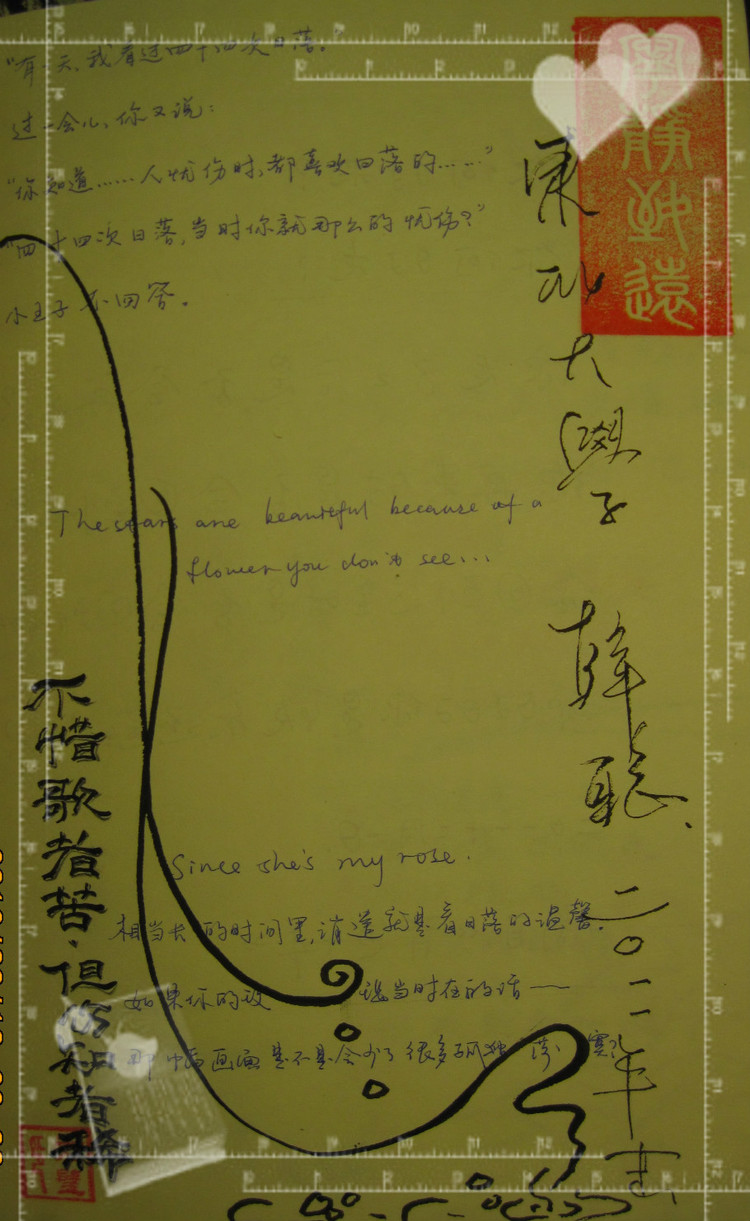 "有一天，我看过四十四次日落。"
过一会儿，你又说：
"你知道……人忧伤时，都喜欢日落的……"
"四十四次日落，当时你就那么的忧伤？"
小王子不回答。
The stars are beautiful because of a
flower you don't see...
Since she's my rose.
相当长的时间里，消遣就是看日落的温馨。
如果你的玫 瑰当时在的话——
那幅画面是不是会少了很多孤独
不惜歌者苦·但伤知者稀
寧靜致遠
東北大學子
韓聪、
二〇一一年书